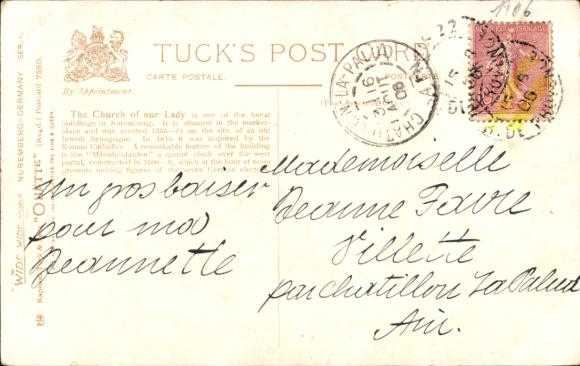 1906
TUCK'S POST CARD
CARTE POSTALE.
By Appointment.
The Church of our Lady is one of the finest
buildings in Nuremberg. It is situated in the market-
place and was erected 1355-61 on the site of an old
Jewish Synagogue. In 1816 it was acquired by the
Roman Catholics. A remarkable feature of the building
is the "Männleinlaufen" a quaint clock over the west
portal, constructed in which at the hour of noon
presents moving figures of the seven German electors
"WIDE WIDE WORLD NUREMBERG-GERMANY. SER. I.
"OILETTE" [Regd.] Postcard 7580.
Raphael Tuck &
CHATILLON-LA-PALUD
AIN
16
AOUT
06
22
15 8
06
Un gros baiser
pour ma
Jeannette
Mademoiselle
Jeanne Favre
Villette
par chatillon La Palud
Ain.